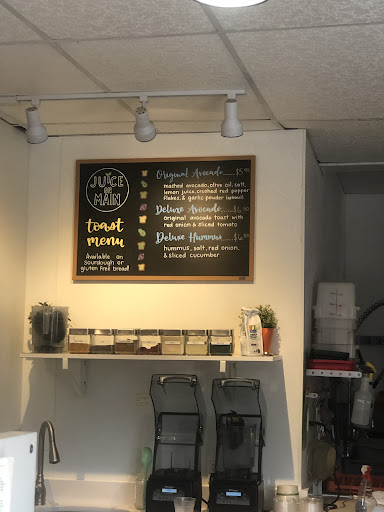 JUICE
ON
MAIN
toast
menu
Available on
Sourdough or
gluten free bread!
Original Avocado
mashed avocado, olive oil, salt,
lemon juice, crushed red pepper
flakes, & garlic powder
Deluxe Avocado
original avocado toast with
red onion & sliced tomato
Deluxe Hummus
hummus, salt, red onion,
& sliced cucumber